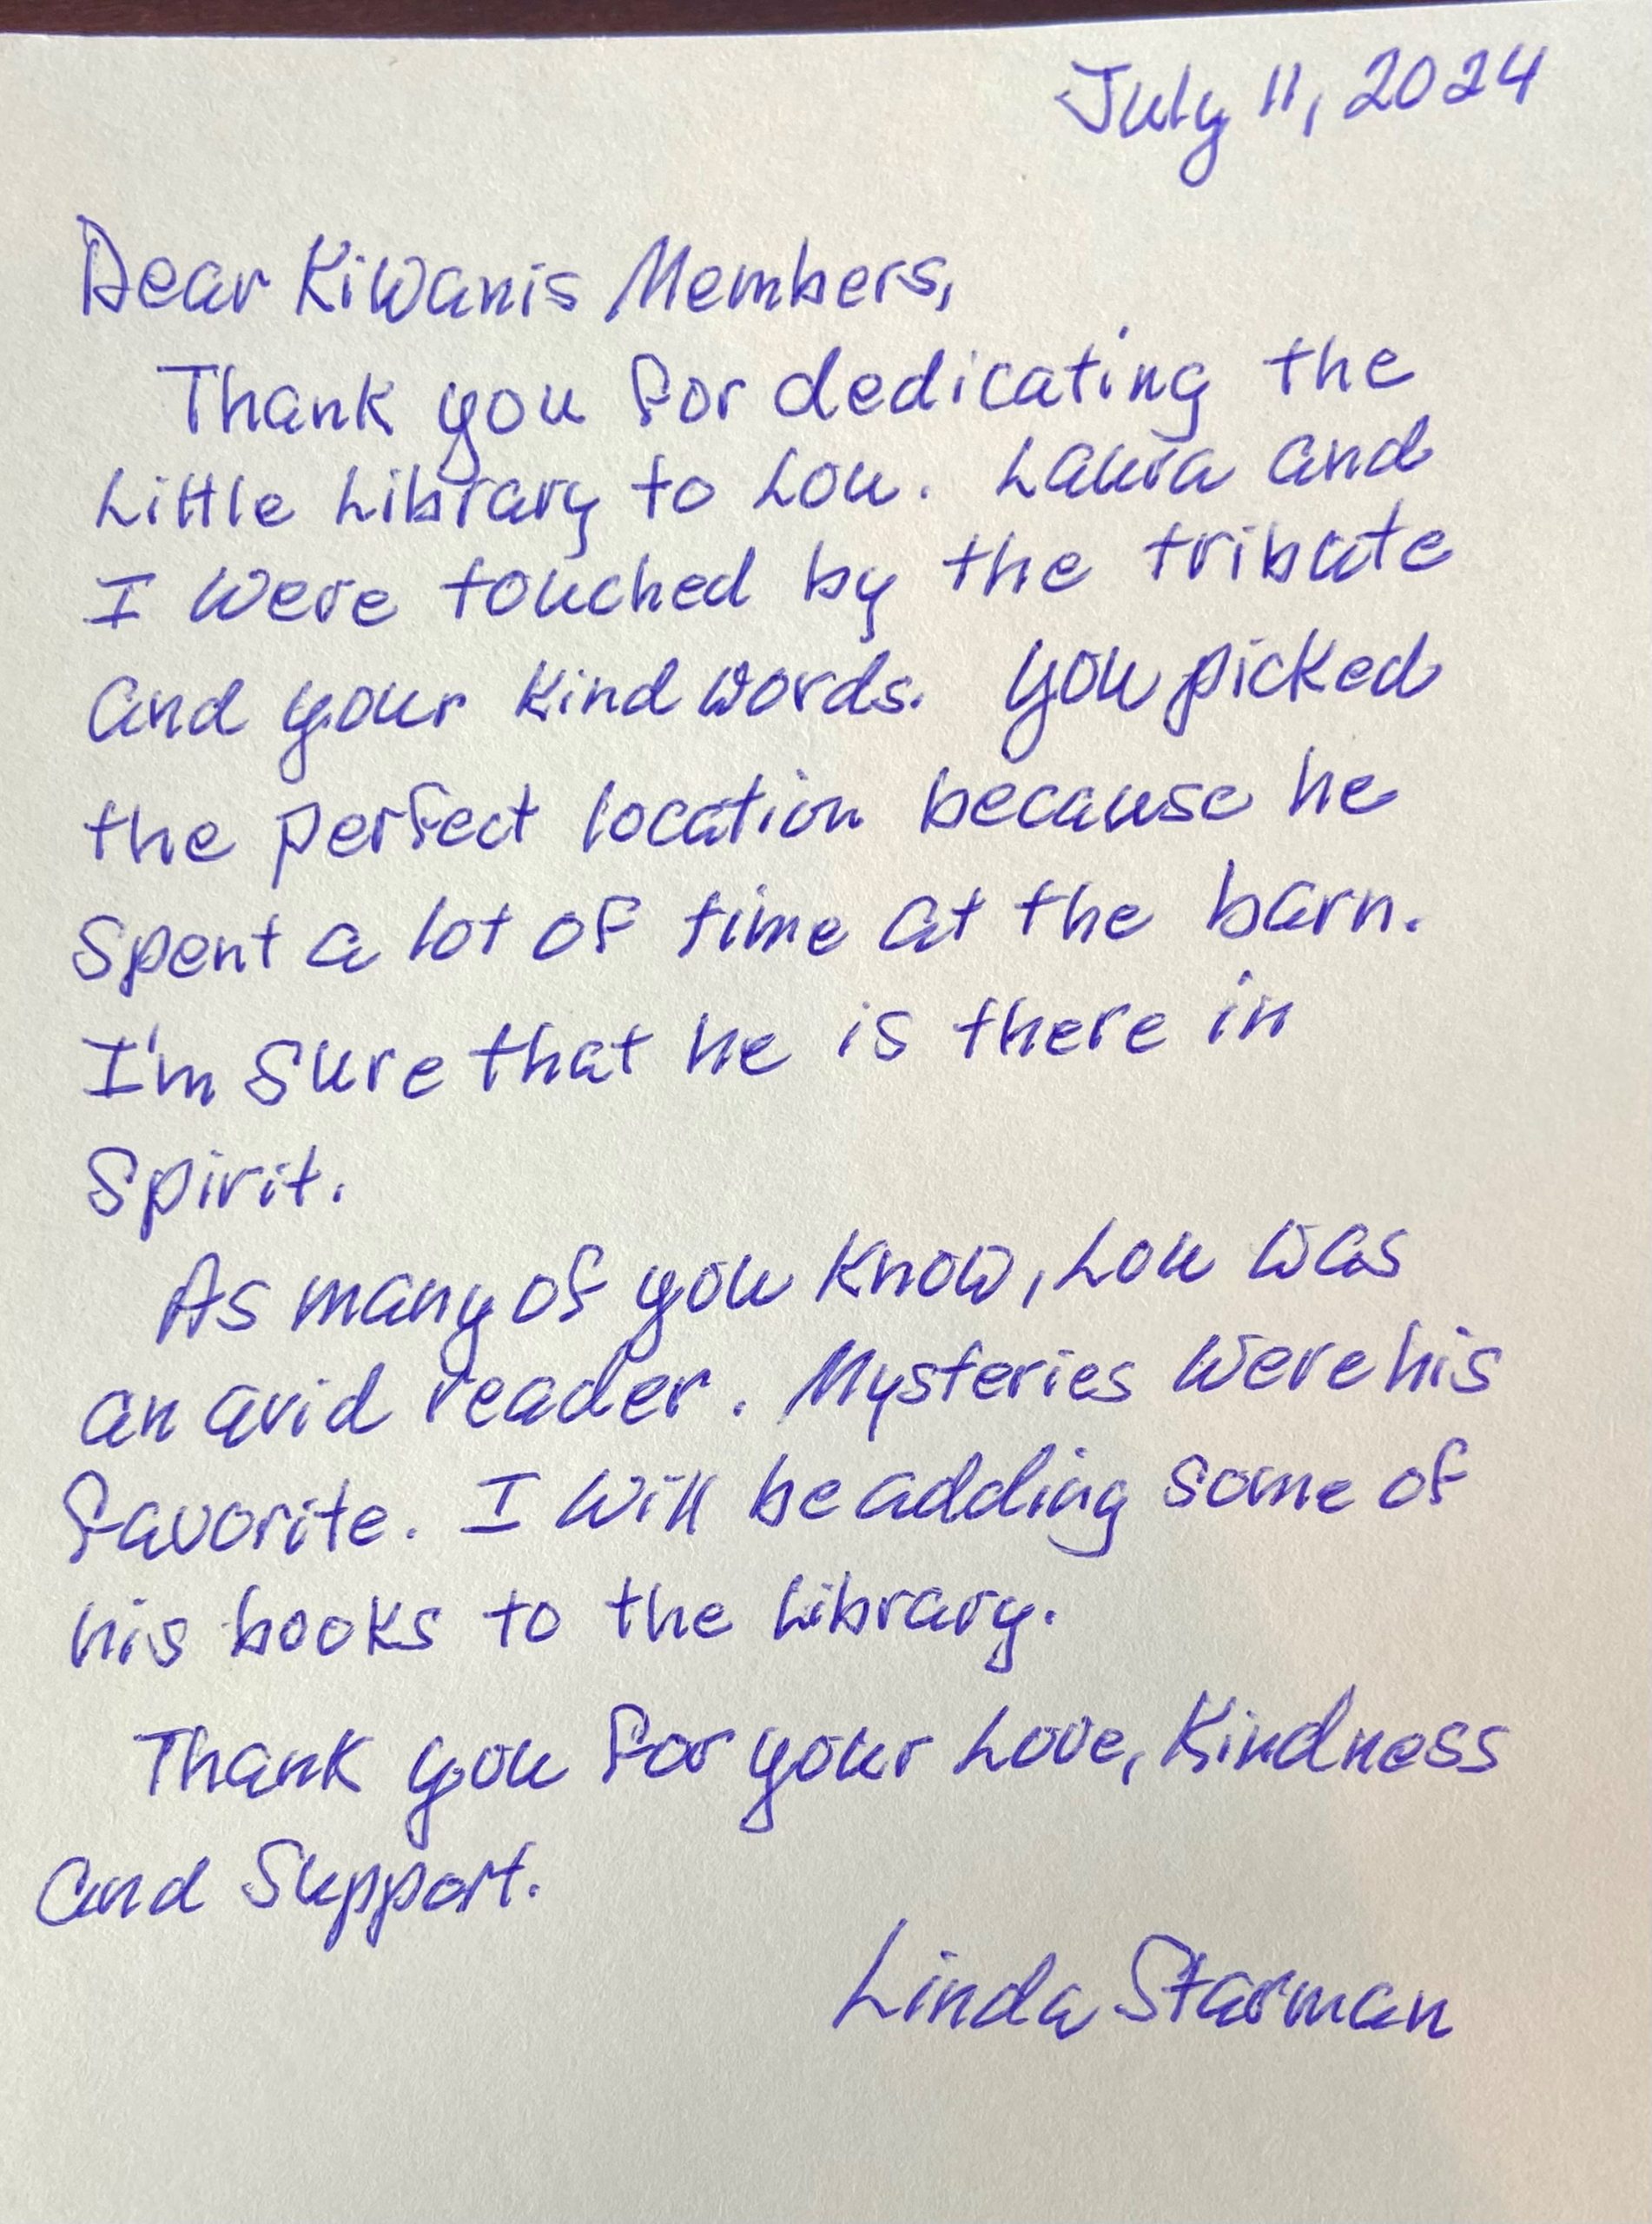 July 11, 2024
Dear Kiwanis Members,
Thank you for dedicating the
Little Library to Lou. Laura and
I were touched by the tribute
and your kind words. You picked
the perfect location because he
spent a lot of time at the barn.
I'm sure that he is there in
Spirit.
As many of you know, Lou was
an avid reader. Mysteries were his
favorite. I will be adding some of
his books to the Library.
Thank you for your Love, Kindness
and Support.
Linda Starman